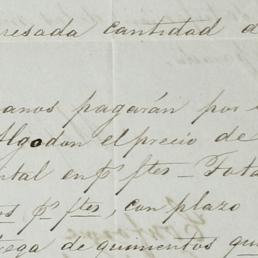 resada cantidad d
anos pagarán por
Algodon el precio de
ntal en ps. ftes - Tota
os ps. ftes, con plazo
ega de quinientos qui